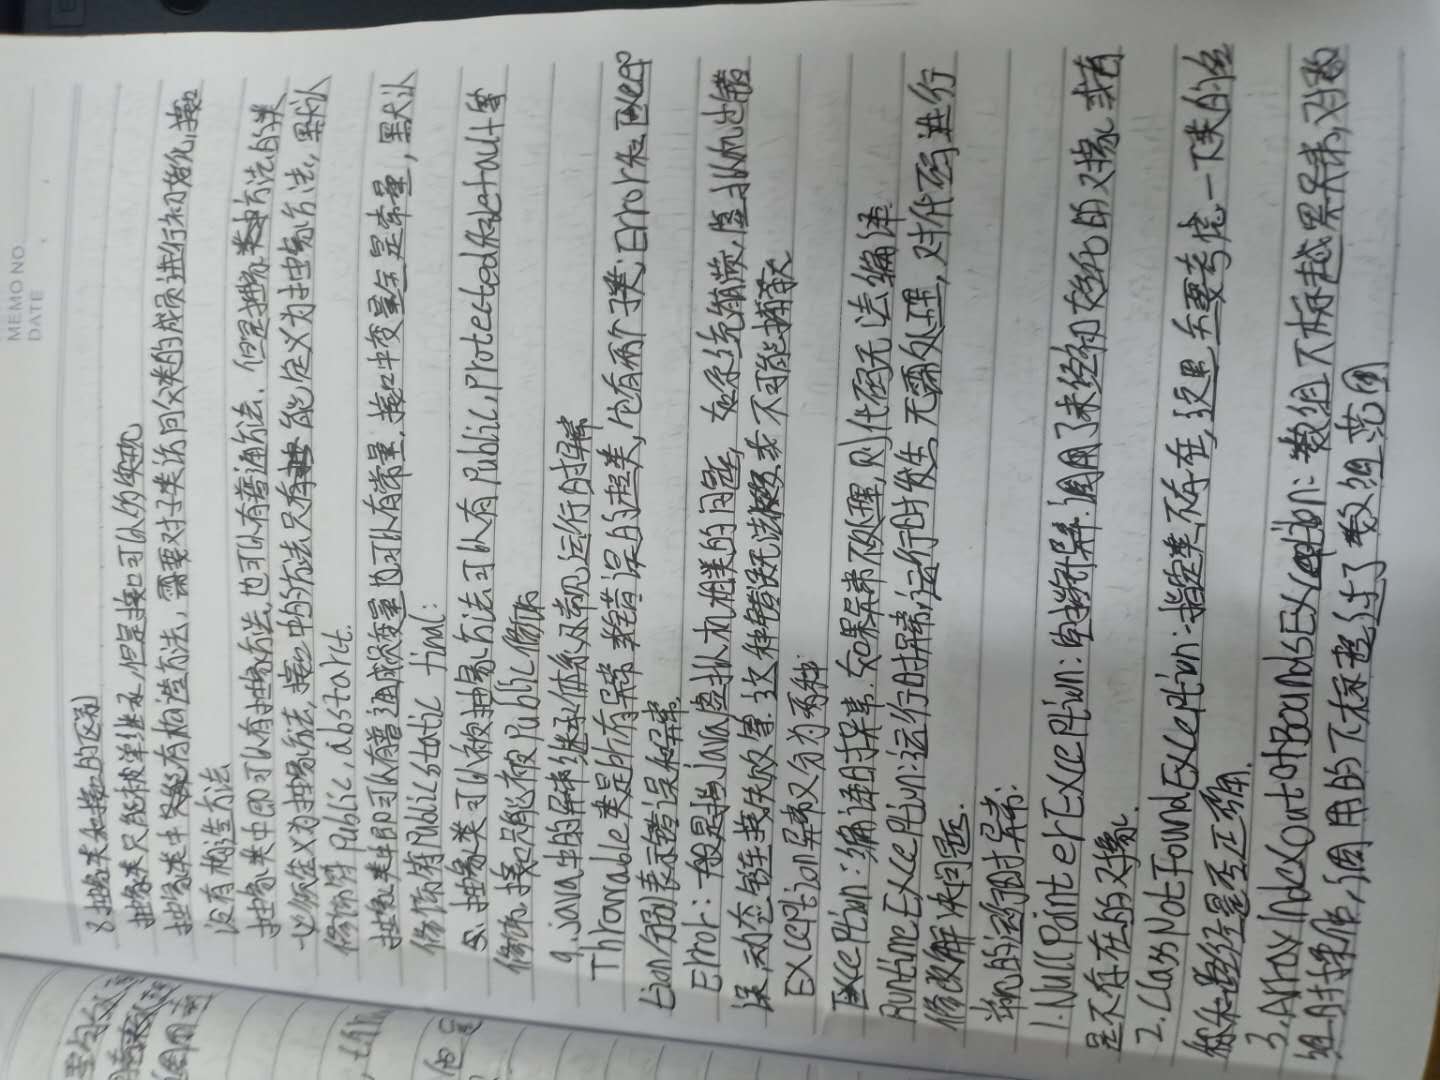 MEMO NO
DATE
8.抽象类和接口的区别
抽象类只能被单继承,但是接口可以的实现
抽象类中有构造方法,需要对子类访问父类的成员进行初始化,接口
没有构造方法
抽象类中即可以有抽象方法,也可以有普通方法,但是抽象方法的类
必须定义为抽象方法,接口中的方法只有能定义为抽象方法,默认
修饰符Public,abstarct.
抽象类中即可以有普通成员变量也可以有常量.接口中变量全是常量,默认
修饰符Public static final:
5.抽象类可以被抽象方法可以有Public,Protected和default等
修饰,接口只能被Public修饰
9.java中的异常继承体系及常见运行时异常
Throwable类是所有异常类错误的超类,他有两个子类;Error和Excep
tion分别表示错误和异常.
Error:一般是指java虚拟机相关的问题,如系统崩溃,虚拟机出错
误,动态链接失败等,这种错误无法恢复或不可能捕获
Exception异常又分为两种:
Exception:编译时异常.如果异常不处理,则代码无法编译.
RuntimeException:运行时异常,运行时发生,无需处理,对代码进行
修改解决问题.
常见的运行时异常:
1.NullPointerException:空指针异常.调用了未经初始化的对象或者
是不存在的对象.
2.ClassNotFoundException:指定类不存在,这里主要考虑一下类的名
称和路径是否正确.
3.ArrayIndexOutOfBoundsException:数组下标越界异常,对数
组时操作,调用的下标超过了数组范围